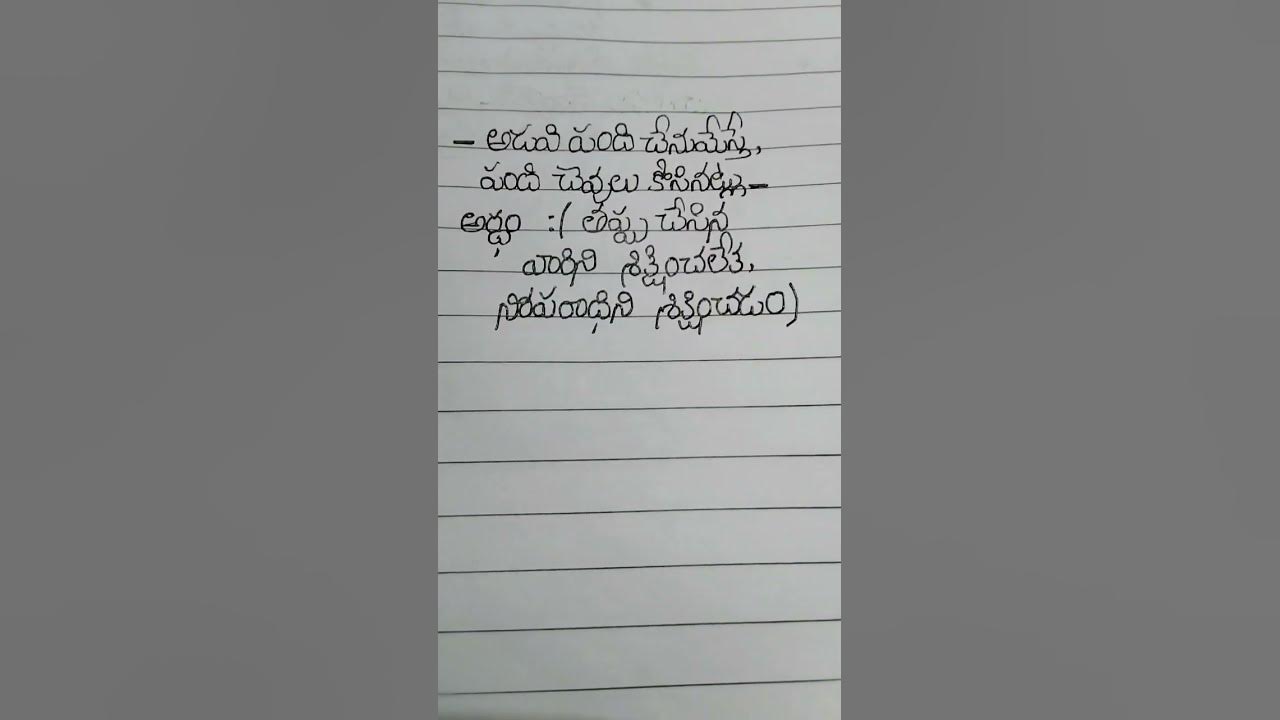 - అడవి పంది చేనుమేస్తే,
పంది చెవులు కోసినట్లు-
అర్ధం :( తప్పు చేసిన
వారిని శిక్షించలేక,
నిరపరాధిని శిక్షించడం)